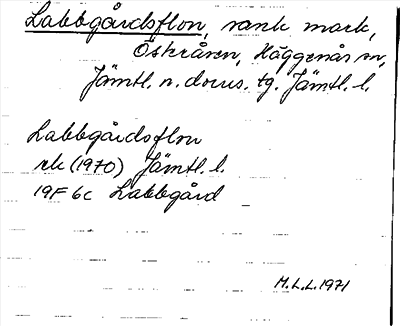 Labbgårdsflon, sank mark,
Österåsen, Häggenås sn,
Jämtl. n. doms. tg. Jämtl. l.
Labbgårdsflon
ek (1970) Jämtl. l.
19F 6c Labbgård
M.L.L. 1971